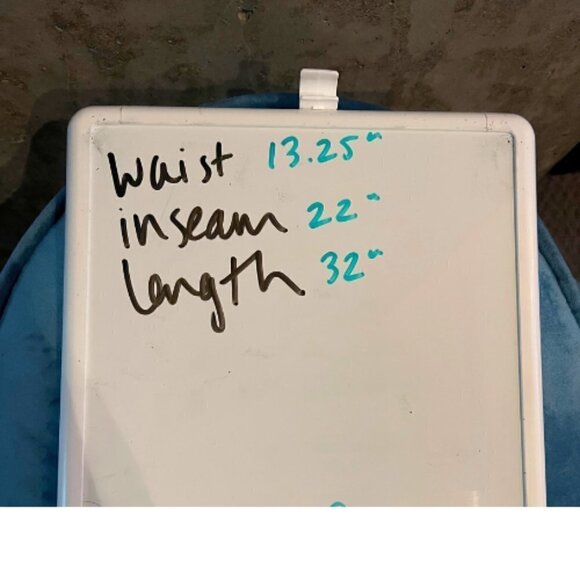 waist 13.25"
inseam 22"
length 32"